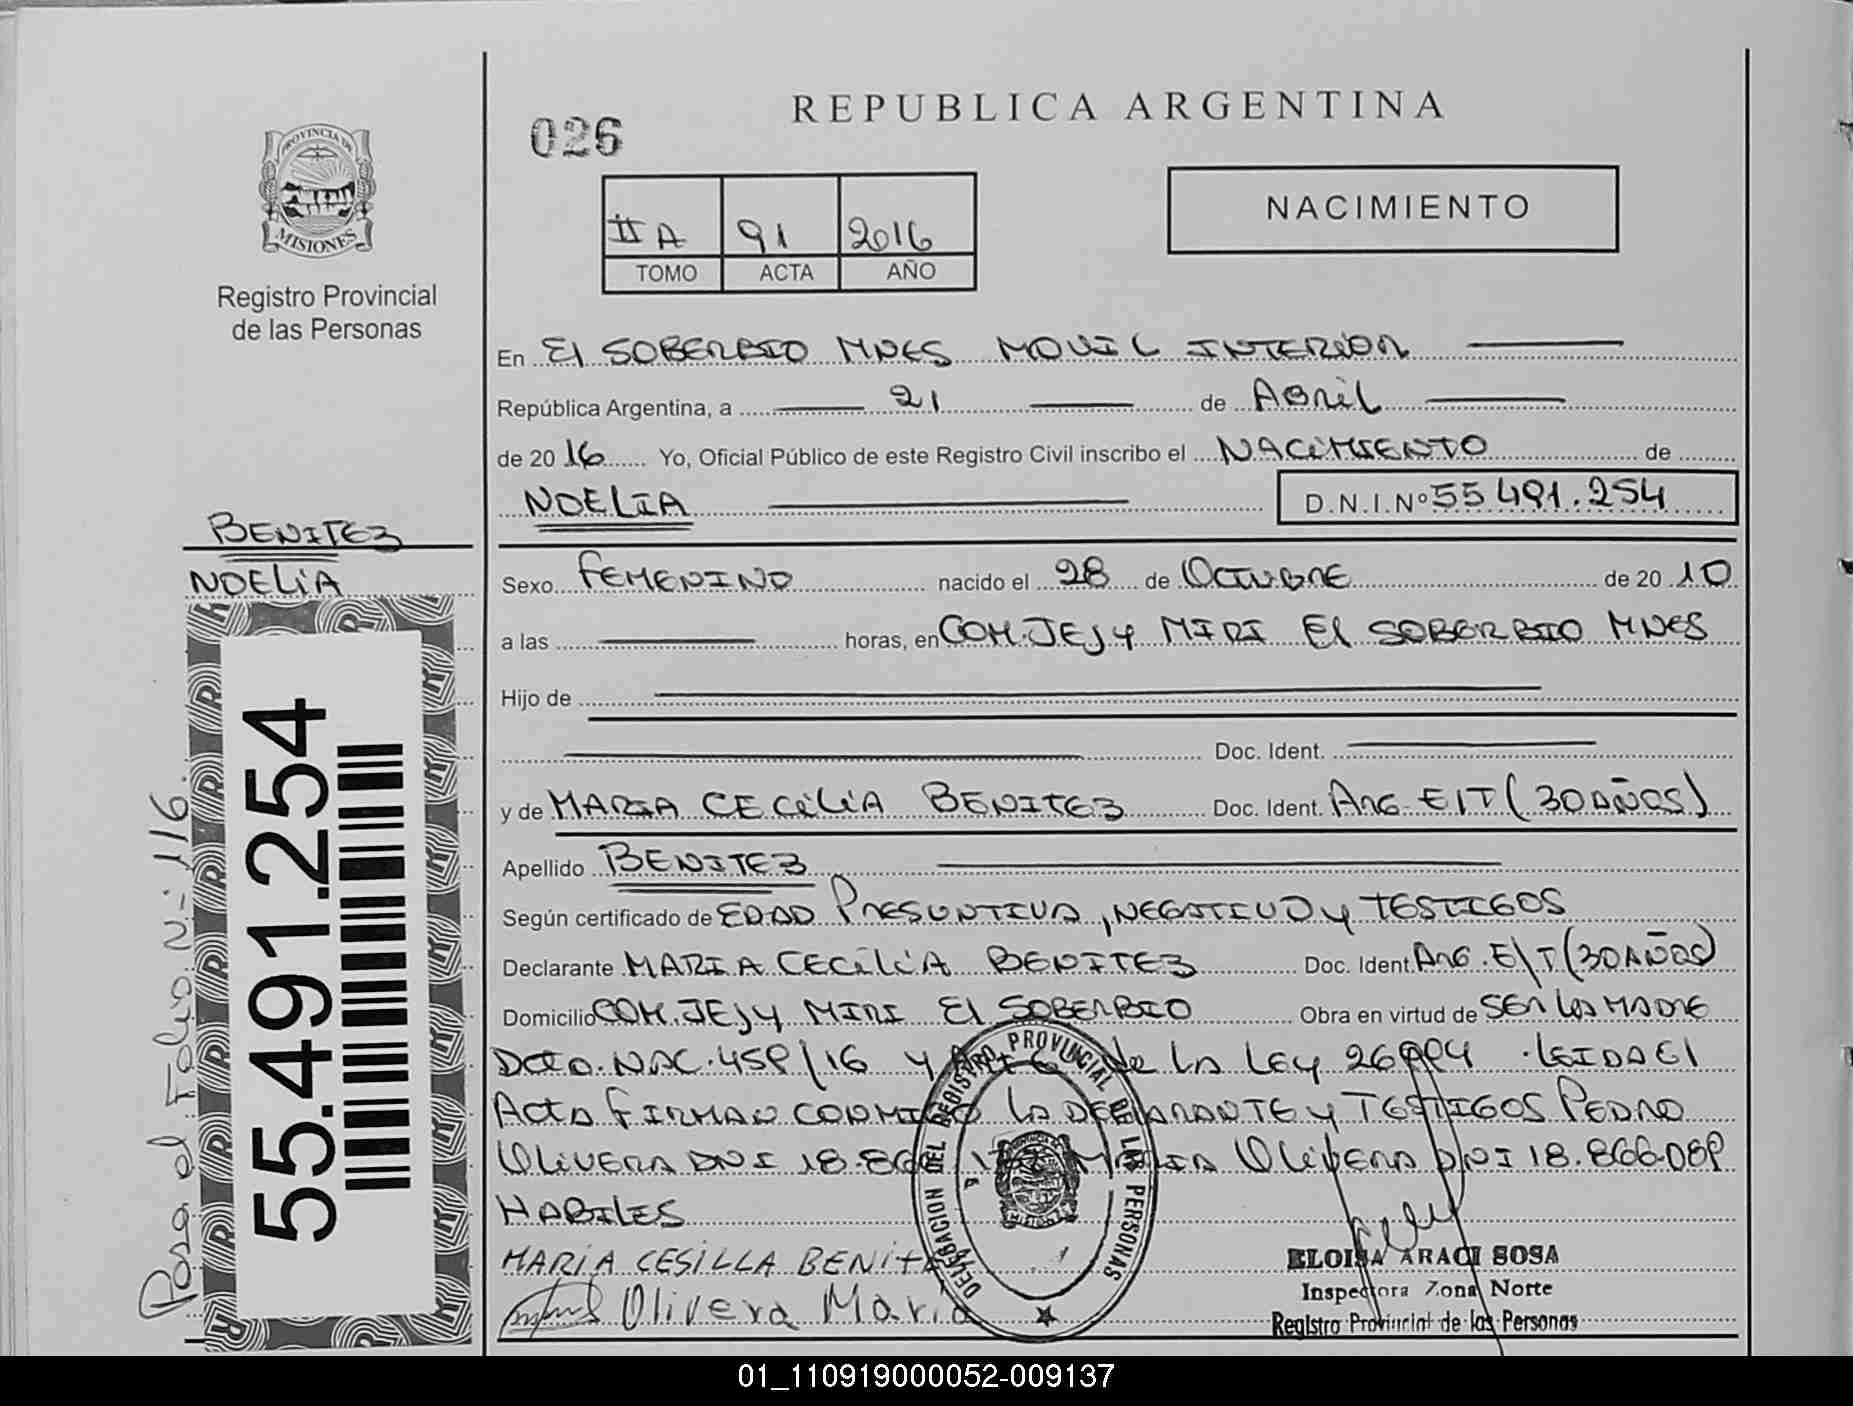 REPUBLICA ARGENTINA
026
NACIMIENTO
II A 91 2016
TOMO ACTA AÑO
PROVINCIA DE
MISIONES
Registro Provincial
de las Personas
En El SOBERBIO MNES MOVIL INTERIOR
República Argentina, a 21 de Abril
de 2016 Yo, Oficial Público de este Registro Civil inscribo el NACIMIENTO de
NOELIA D.N.I.Nº 55 491.254
BENITEZ
NOELIA
Sexo FEMENINO nacido el 28 de OCTUBRE de 2010
a las horas, en COM. JEJY MIRI El SOBERBIO MNES
Hijo de
Doc. Ident.
y de MARIA CECILIA BENITEZ Doc. Ident. ARG. E/T (30 AÑOS)
Apellido BENITEZ
Según certificado de EDAD PRESUNTIVA, NEGATIVO y TESTIGOS
Declarante MARIA CECILIA BENITEZ Doc. Ident. ARG. E/T (30 AÑOS)
Domicilio COM. JEJY MIRI El SOBERBIO Obra en virtud de SER LA MADRE
Dcto. NAC. 459/16 y de LA LEY LEIDA El
Acta FIRMAN CONMIGO LA DECLARANTE y TESTIGOS PEDRO
OLIVERA DNI MARIA OLIVERA DNI 18.866.089
HABILES
MARIA CESILLA BENIT
Olivera Maria
DELEGACION DEL REGISTRO PROVINCIAL DE LAS PERSONAS
ELOISA ARACI SOSA
Inspectora Zona Norte
Registro Provincial de las Personas
55.491.254
Pasa al Folio Nº 116.
01_110919000052-009137